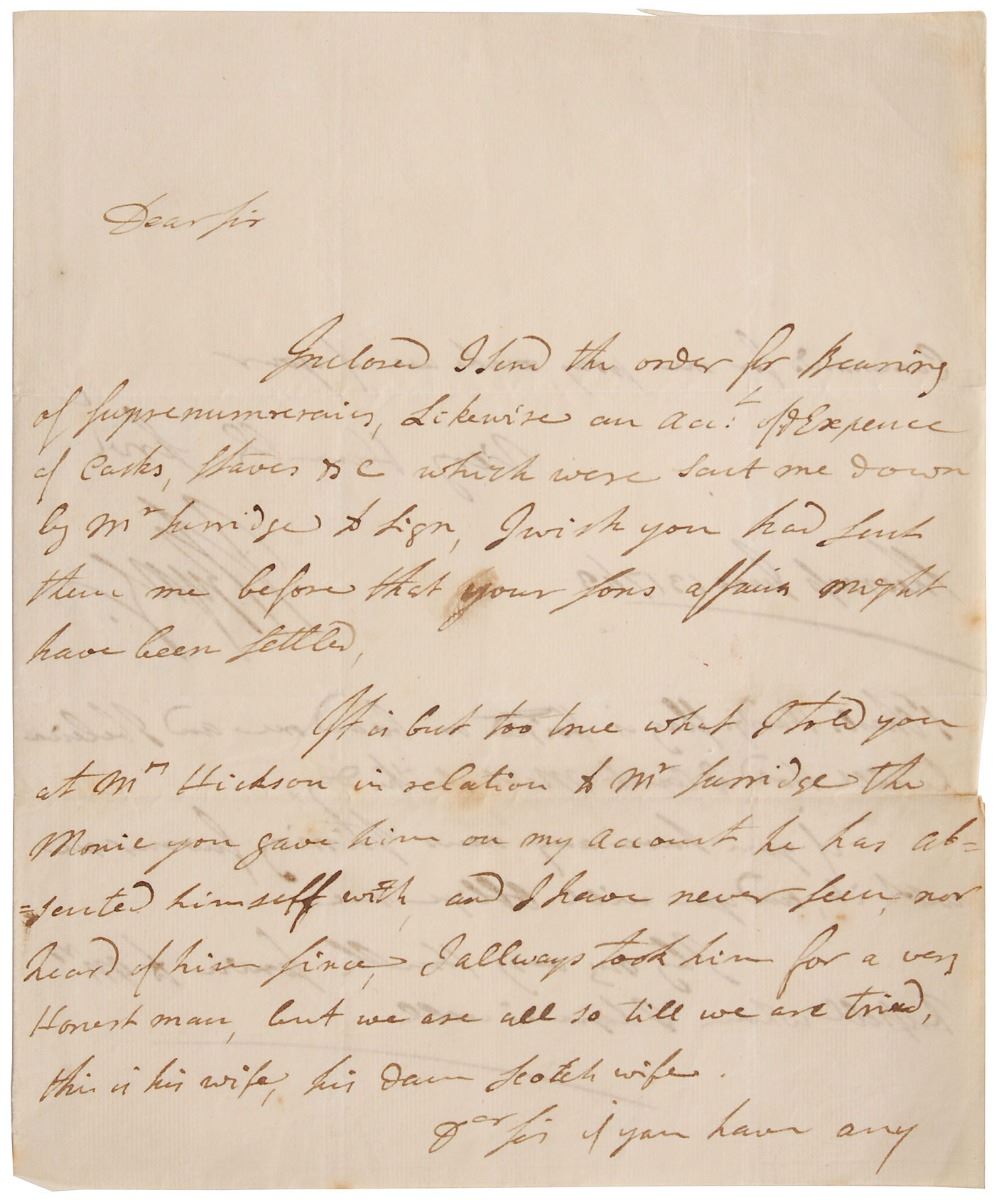 Dear Sir
Inclosed I Send the order for Bearing
of Suprenumreraies, Likewise an Acct: of Expence
of Casks, Staves &c which were Sent me down
by Mr Surridge to Sign, I wish you had Sent
them me before that your Sons affairs might
have been Settled,
It is but too true what I told you
at Mrs Hickson in relation to Mr Surridge the
Monie you gave him on my Account he has ab=
=sented himself with, and I have never Seen, nor
heard of him Since, I allways took him for a very
Honest man, but we are all so till we are tried,
this is his wife, his dam Scotch wife.
Dear Sir if you have any